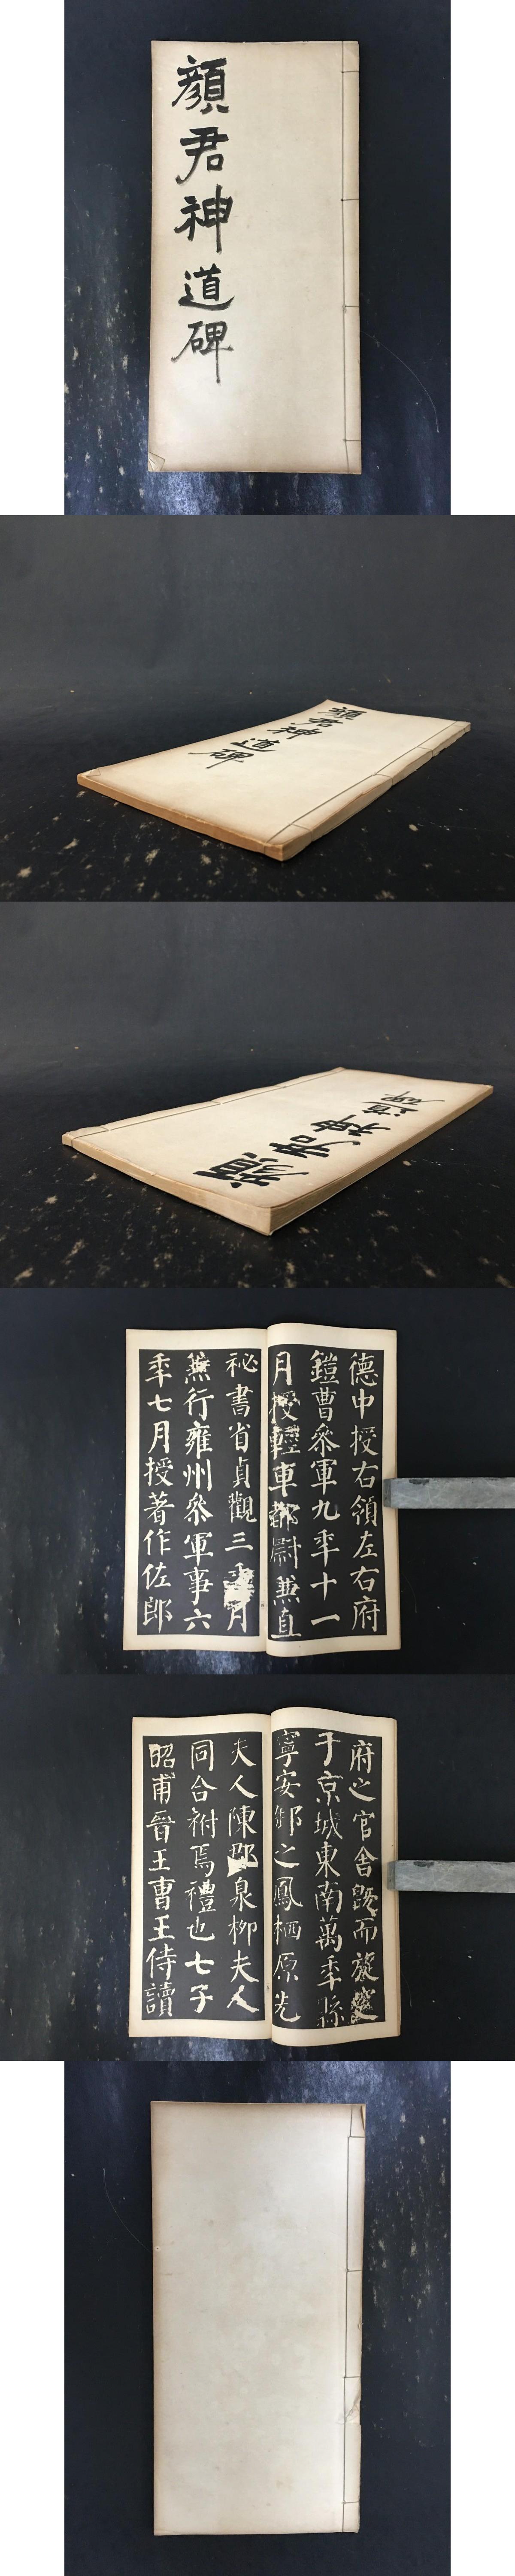 顏君神道碑
顏君神道碑
顏君神道碑
德中授右領左右府
鎧曹叅軍九秊十一
月授輕車都尉兼直
祕書省貞觀三秊月
兼行雍州叅軍事六
秊七月授著作佐郎
府之官舍既而旋窆
于京城東南萬秊縣
寧安鄉之鳳栖原先
夫人陳郡泉柳夫人
同合祔焉禮也七子
昭甫晉王曹王侍讀